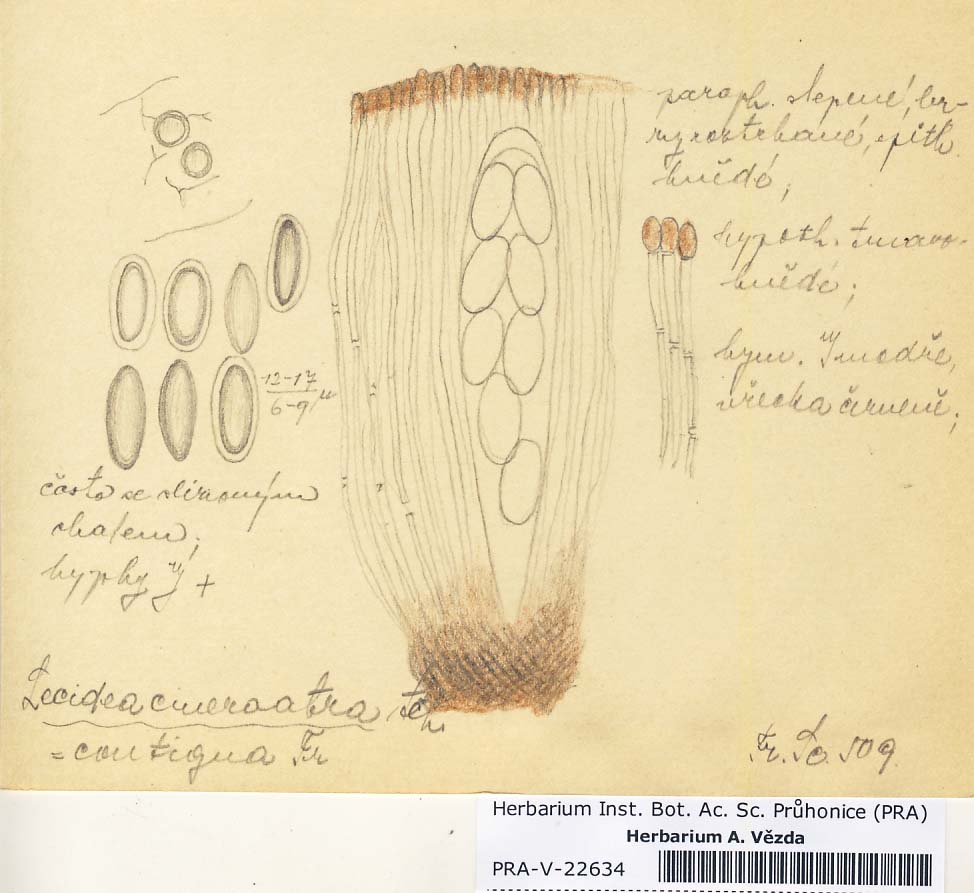 paraph. slepené, br-
hypoth. tmavo-
hnědé;
hym. J modře,
vřecka červeně;
12-17
6-9 µ
často se slizovým
obalem;
hyphy J +
Lecidea cinereoatra Ach.
= contigua Fr
Fr. Lo. 509
Herbarium Inst. Bot. Ac. Sc. Průhonice (PRA)
Herbarium A. Vězda
PRA-V-22634